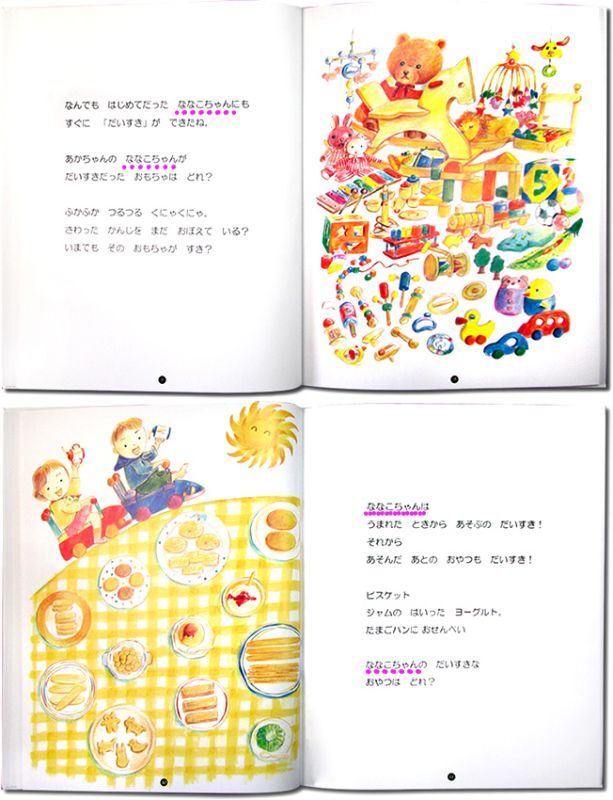 なんでも　はじめてだった　ななこちゃんにも
すぐに　「だいすき」が　できたね。
あかちゃんの　ななこちゃんが
だいすきだった　おもちゃは　どれ？
ふかふか　つるつる　くにゃくにゃ。
さわった　かんじを　まだ　おぼえて　いる？
いまでも　その　おもちゃが　すき？
5
ななこちゃんは
うまれた　ときから　あそぶの　だいすき！
それから
あそんだ　あとの　おやつも　だいすき！
ビスケット
ジャムの　はいった　ヨーグルト。
たまごパンに おせんべい
ななこちゃんの　だいすきな
おやつは　どれ？